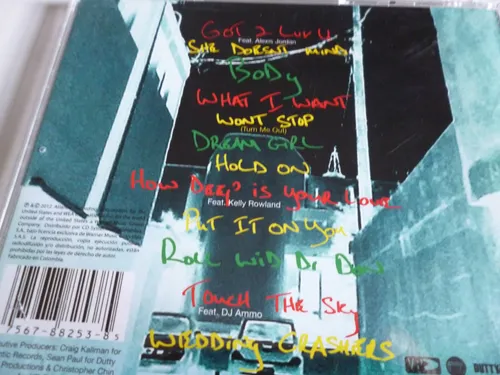 Got 2 Luv U
Feat. Alexis Jordan
SHE DOESNT MIND
BODY
WHAT I WANT
WONT STOP
(Turn Me Out)
DREAM GIRL
HOLD ON
HOW DEEP IS YOUR LOVE
Feat. Kelly Rowland
PUT IT ON YOU
ROLL WID DI DON
TOUCH THE SKY
Feat. DJ Ammo
WEDDING CRASHERS
United States and WEA
outside of the United States
Company.
S.A. bajo licencia exclusiva de Warner Music
S.A.S. La reproducción, copia ejecución pública
radiodifusión y/o distribución, no autorizadas, están
prohibidas por las leyes de derecho de autor.
Fabricado en Colombia.
7567-88253-85
utive Producers: Craig Kallman for
ntic Records, Sean Paul for Dutty
Productions & Christopher Chin
DUTTY